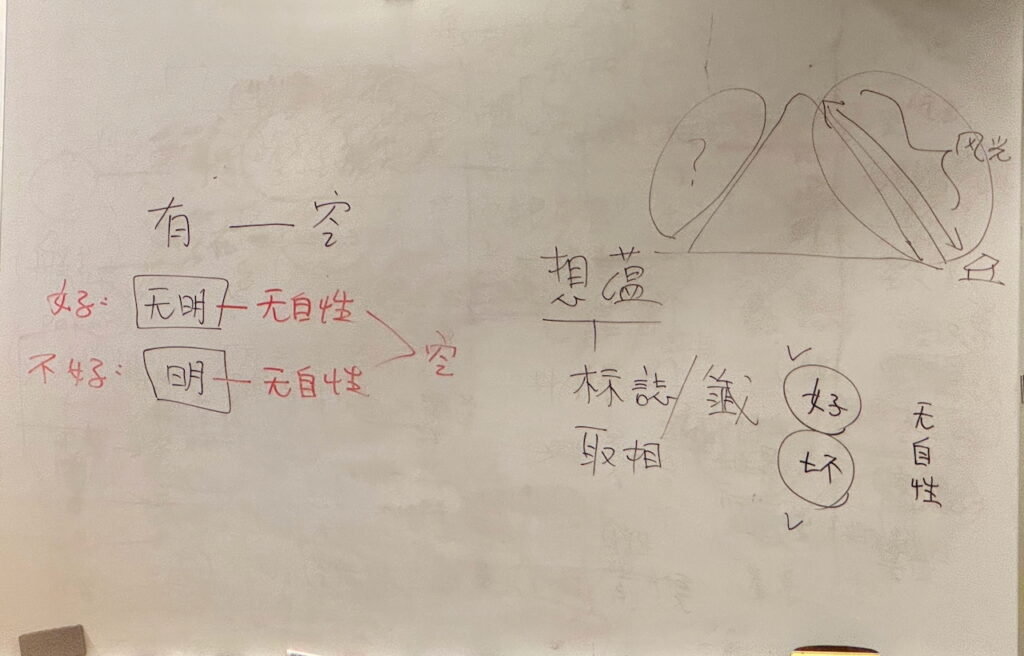 有 — 空
好: 无明 — 无自性
不好: 明 — 无自性
空
?
风光
想蕴
标誌/籤
取相
好
坏
无自性